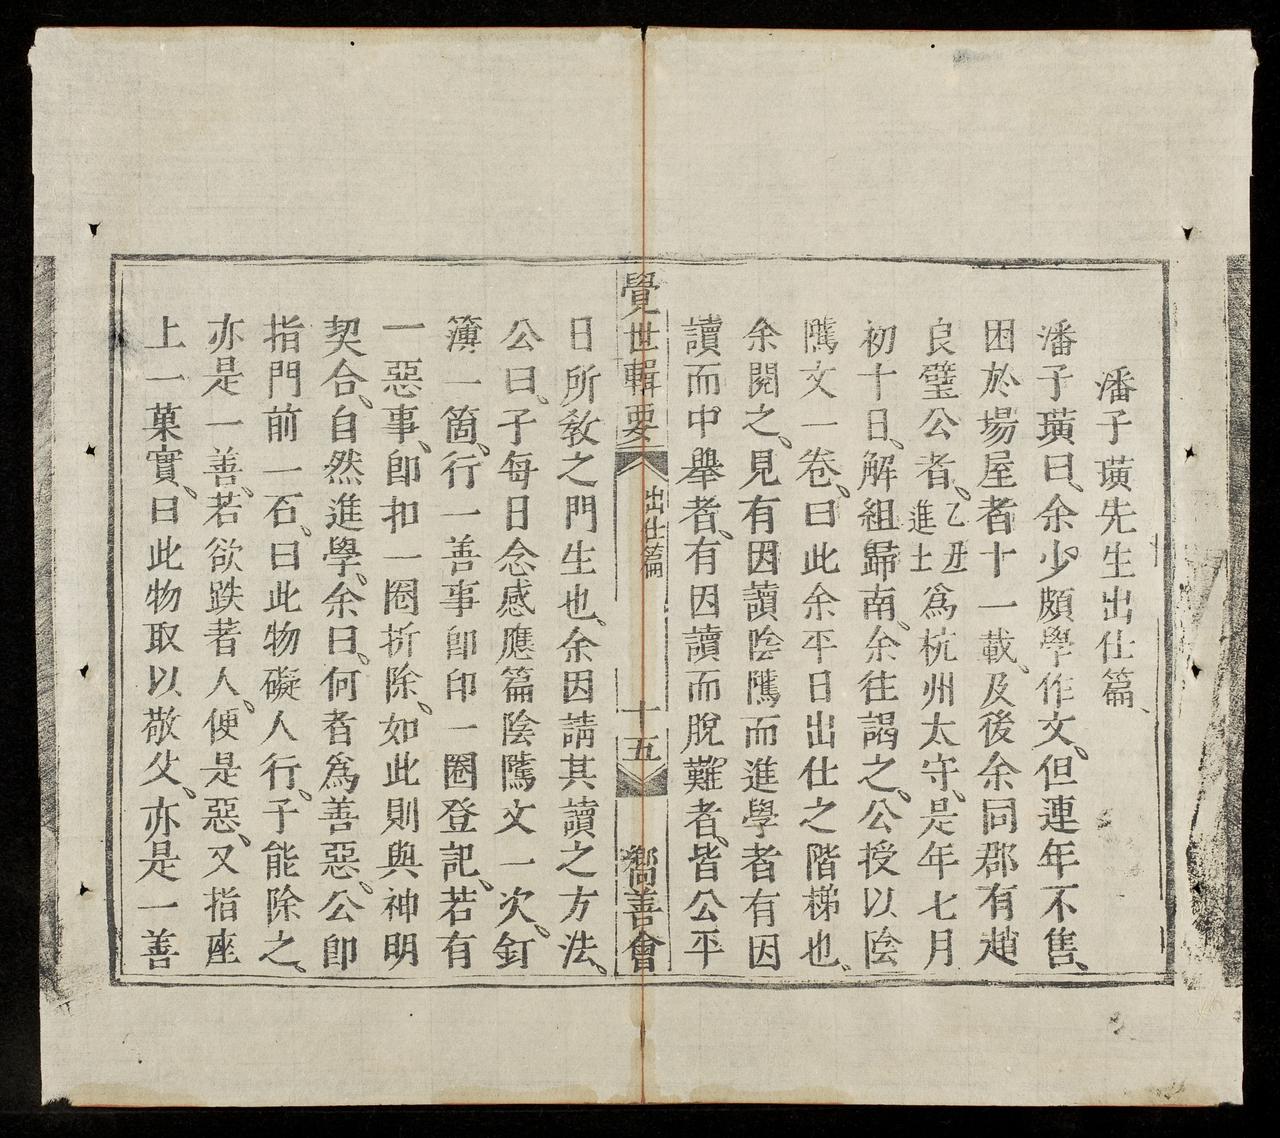 潘子璜先生出仕篇、
潘子璜曰、余少頗學作文、但連年不售、
困於場屋者十一載、及後余同郡有趙
良璧公者、乙丑進士爲杭州太守、是年七月
初十日、解組歸南、余往謁之、公授以陰
隲文一卷、曰此余平日出仕之階梯也、
余閱之、見有因讀陰隲而進學者有因
讀而中舉者、有因讀而脫難者、皆公平
覺世輯要
出仕篇
十五
嚮善會
日所教之門生也、余因請其讀之方法、
公曰、子每日念感應篇陰隲文一次、釘
簿一箇、行一善事卽印一圈登記、若有
一惡事、卽扣一圈折除、如此則與神明
契合、自然進學、余曰、何者爲善惡、公卽
指門前一石、曰此物礙人行、子能除之、
亦是一善、若欲跌著人、便是惡、又指座
上一菓實、曰此物取以敬父、亦是一善